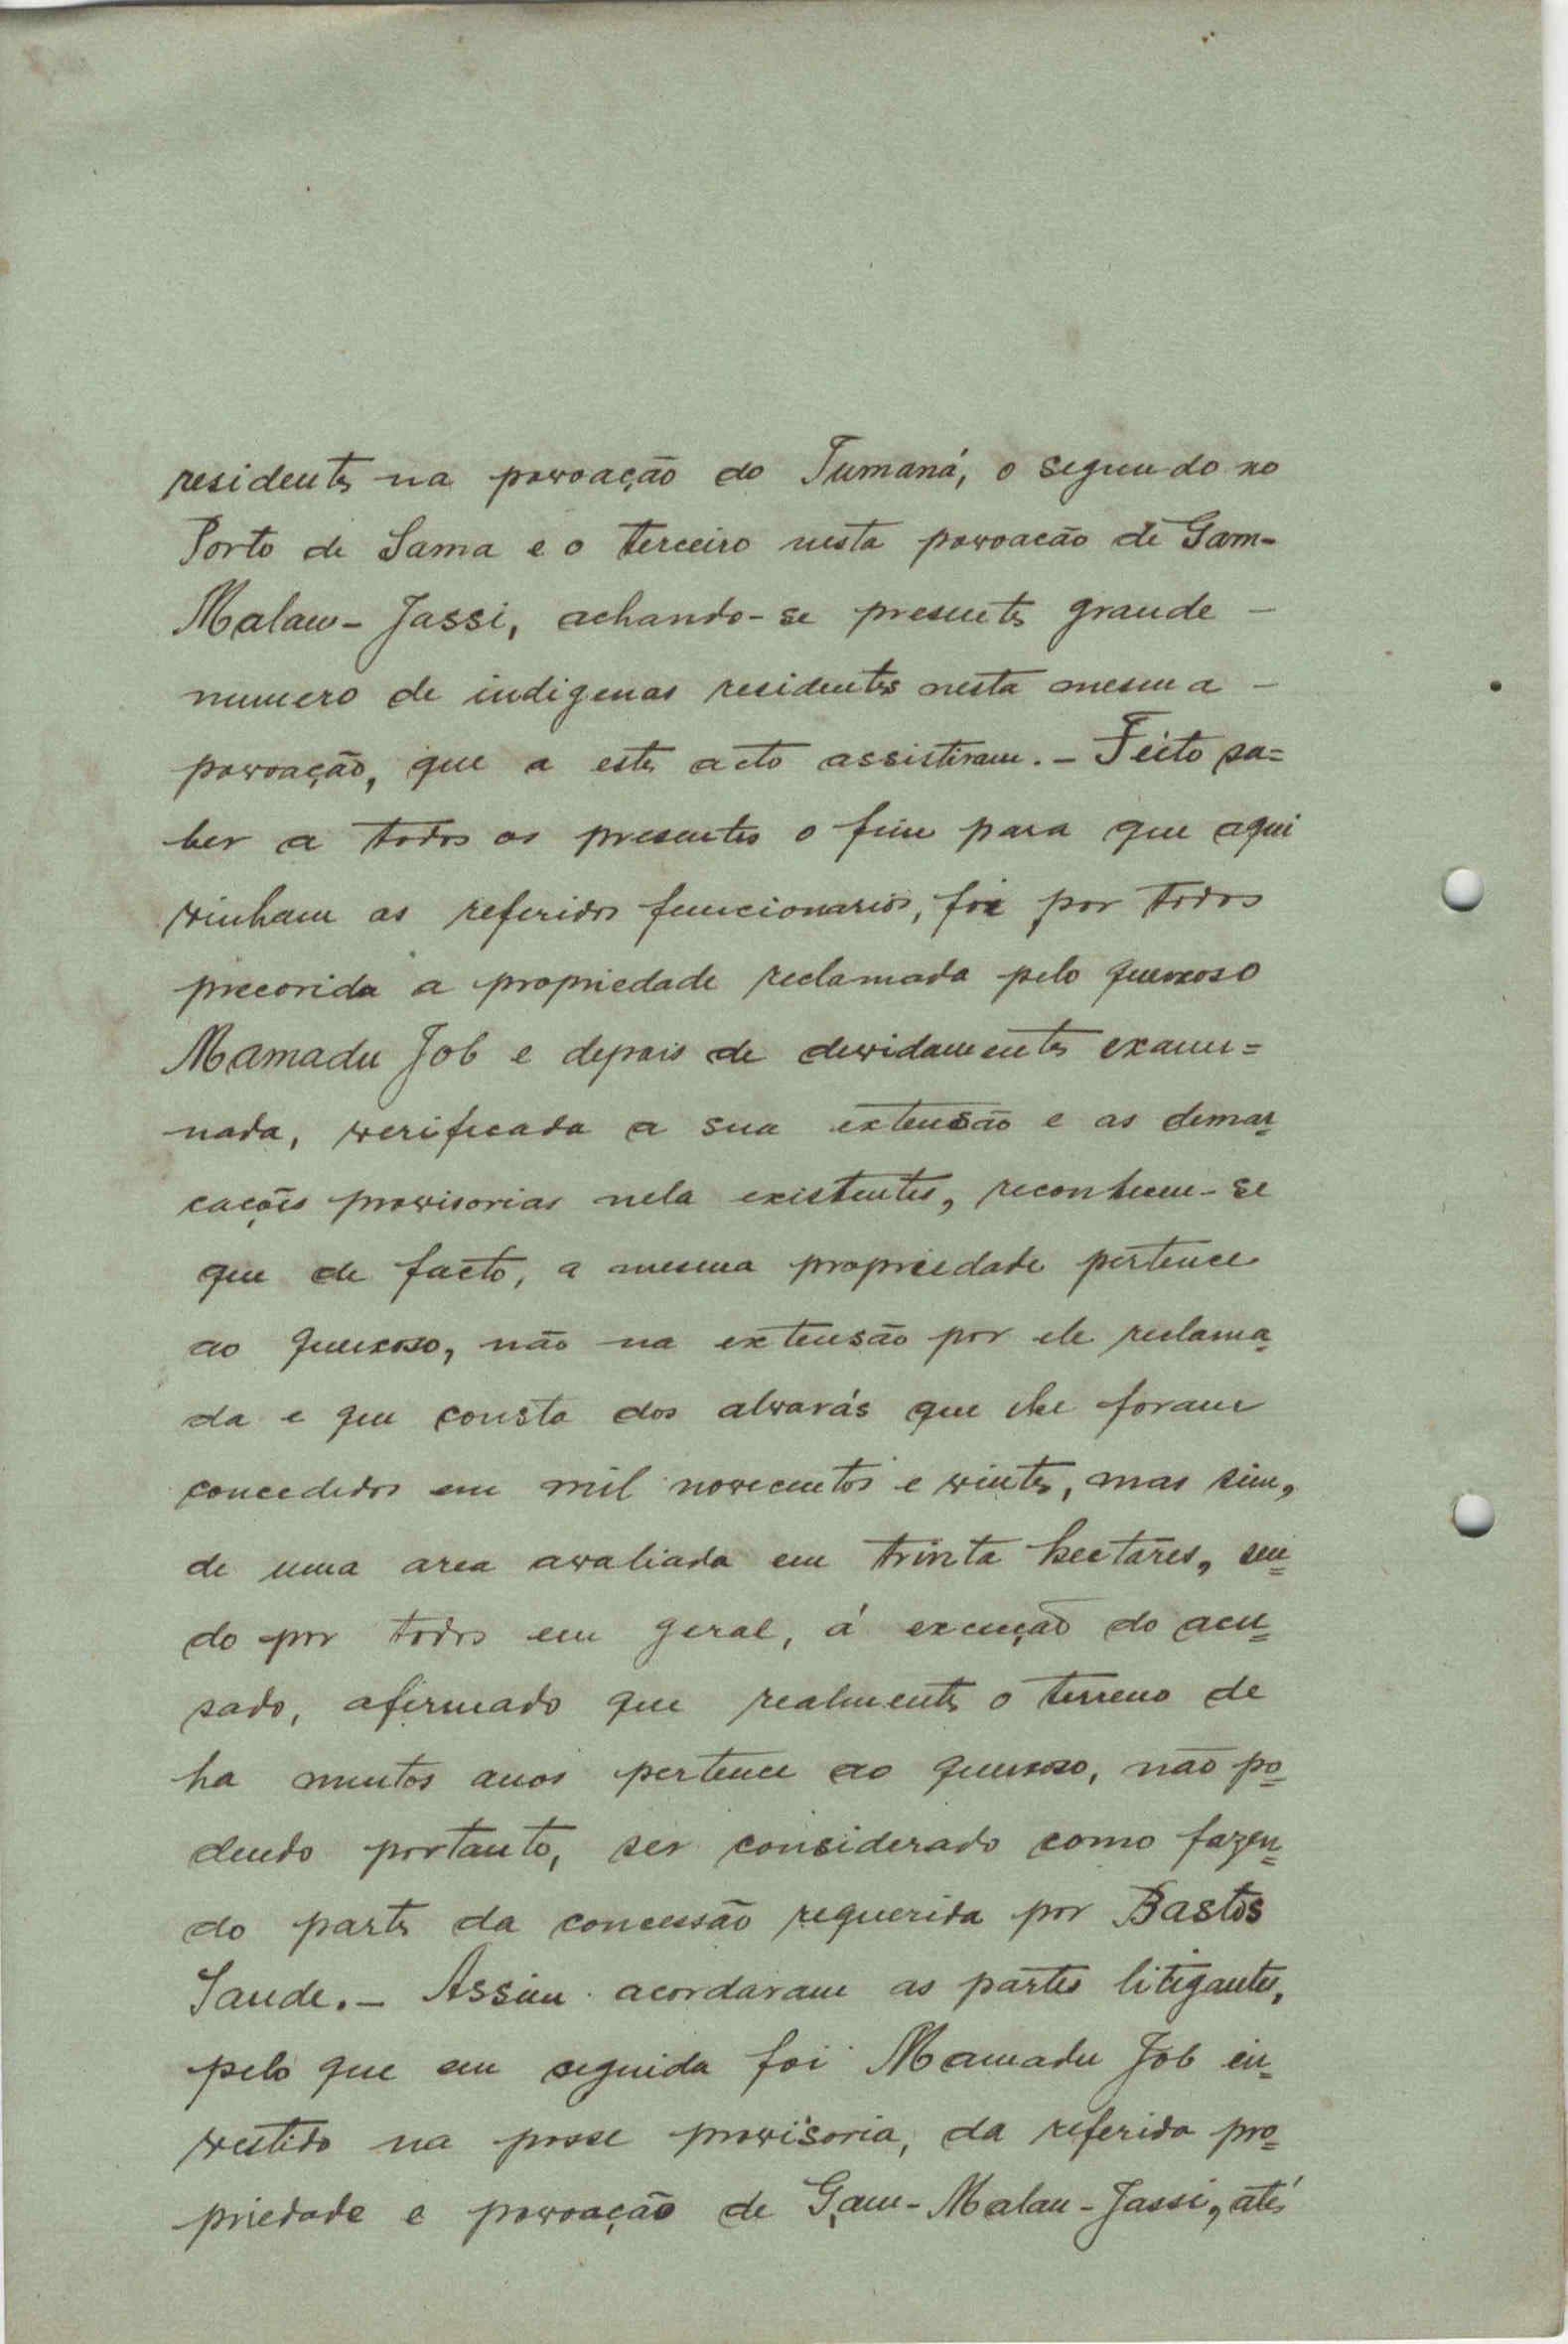 residentes na povoação do Tumaná, o segundo no
Porto de Sama e o terceiro nesta povoacão de Gam-
Malau-Jassi, achando-se presentes grande -
numero de indigenas residentes nesta mesma -
povoação, que a este acto assistiram. - Feito sa=
ber a todos os presentes o fim para que aqui
vinham os referidos funcionarios, foi por todos
precorida a propriedade reclamada pelo queixoso
Mamadu Job e depois de devidamente exami=
nada, verificada a sua extensão e as demar=
cações provisorias nela existentes, reconheceu-se
que de facto, a mesma propriedade pertence
ao queixoso, não na extensão por ele reclama=
da e que consta dos alvarás que lhe foram
concedidos em mil novecentos e vinte, mas sim,
de uma area avaliada em trinta hectares, sen=
do por todos em geral, á exceução do acu=
sado, afirmado que realmente o terreno de
ha muitos anos pertence ao queixoso, não po=
dendo portanto, ser considerado como fazen=
do parte da concessão requerida por Bastos
Saude. - Assim acordaram as partes litigantes,
pelo que em seguida foi Mamadu Job in=
vestido na posse provisoria, da referida pro=
priedade e povoação de Gam-Malau-Jassi, até